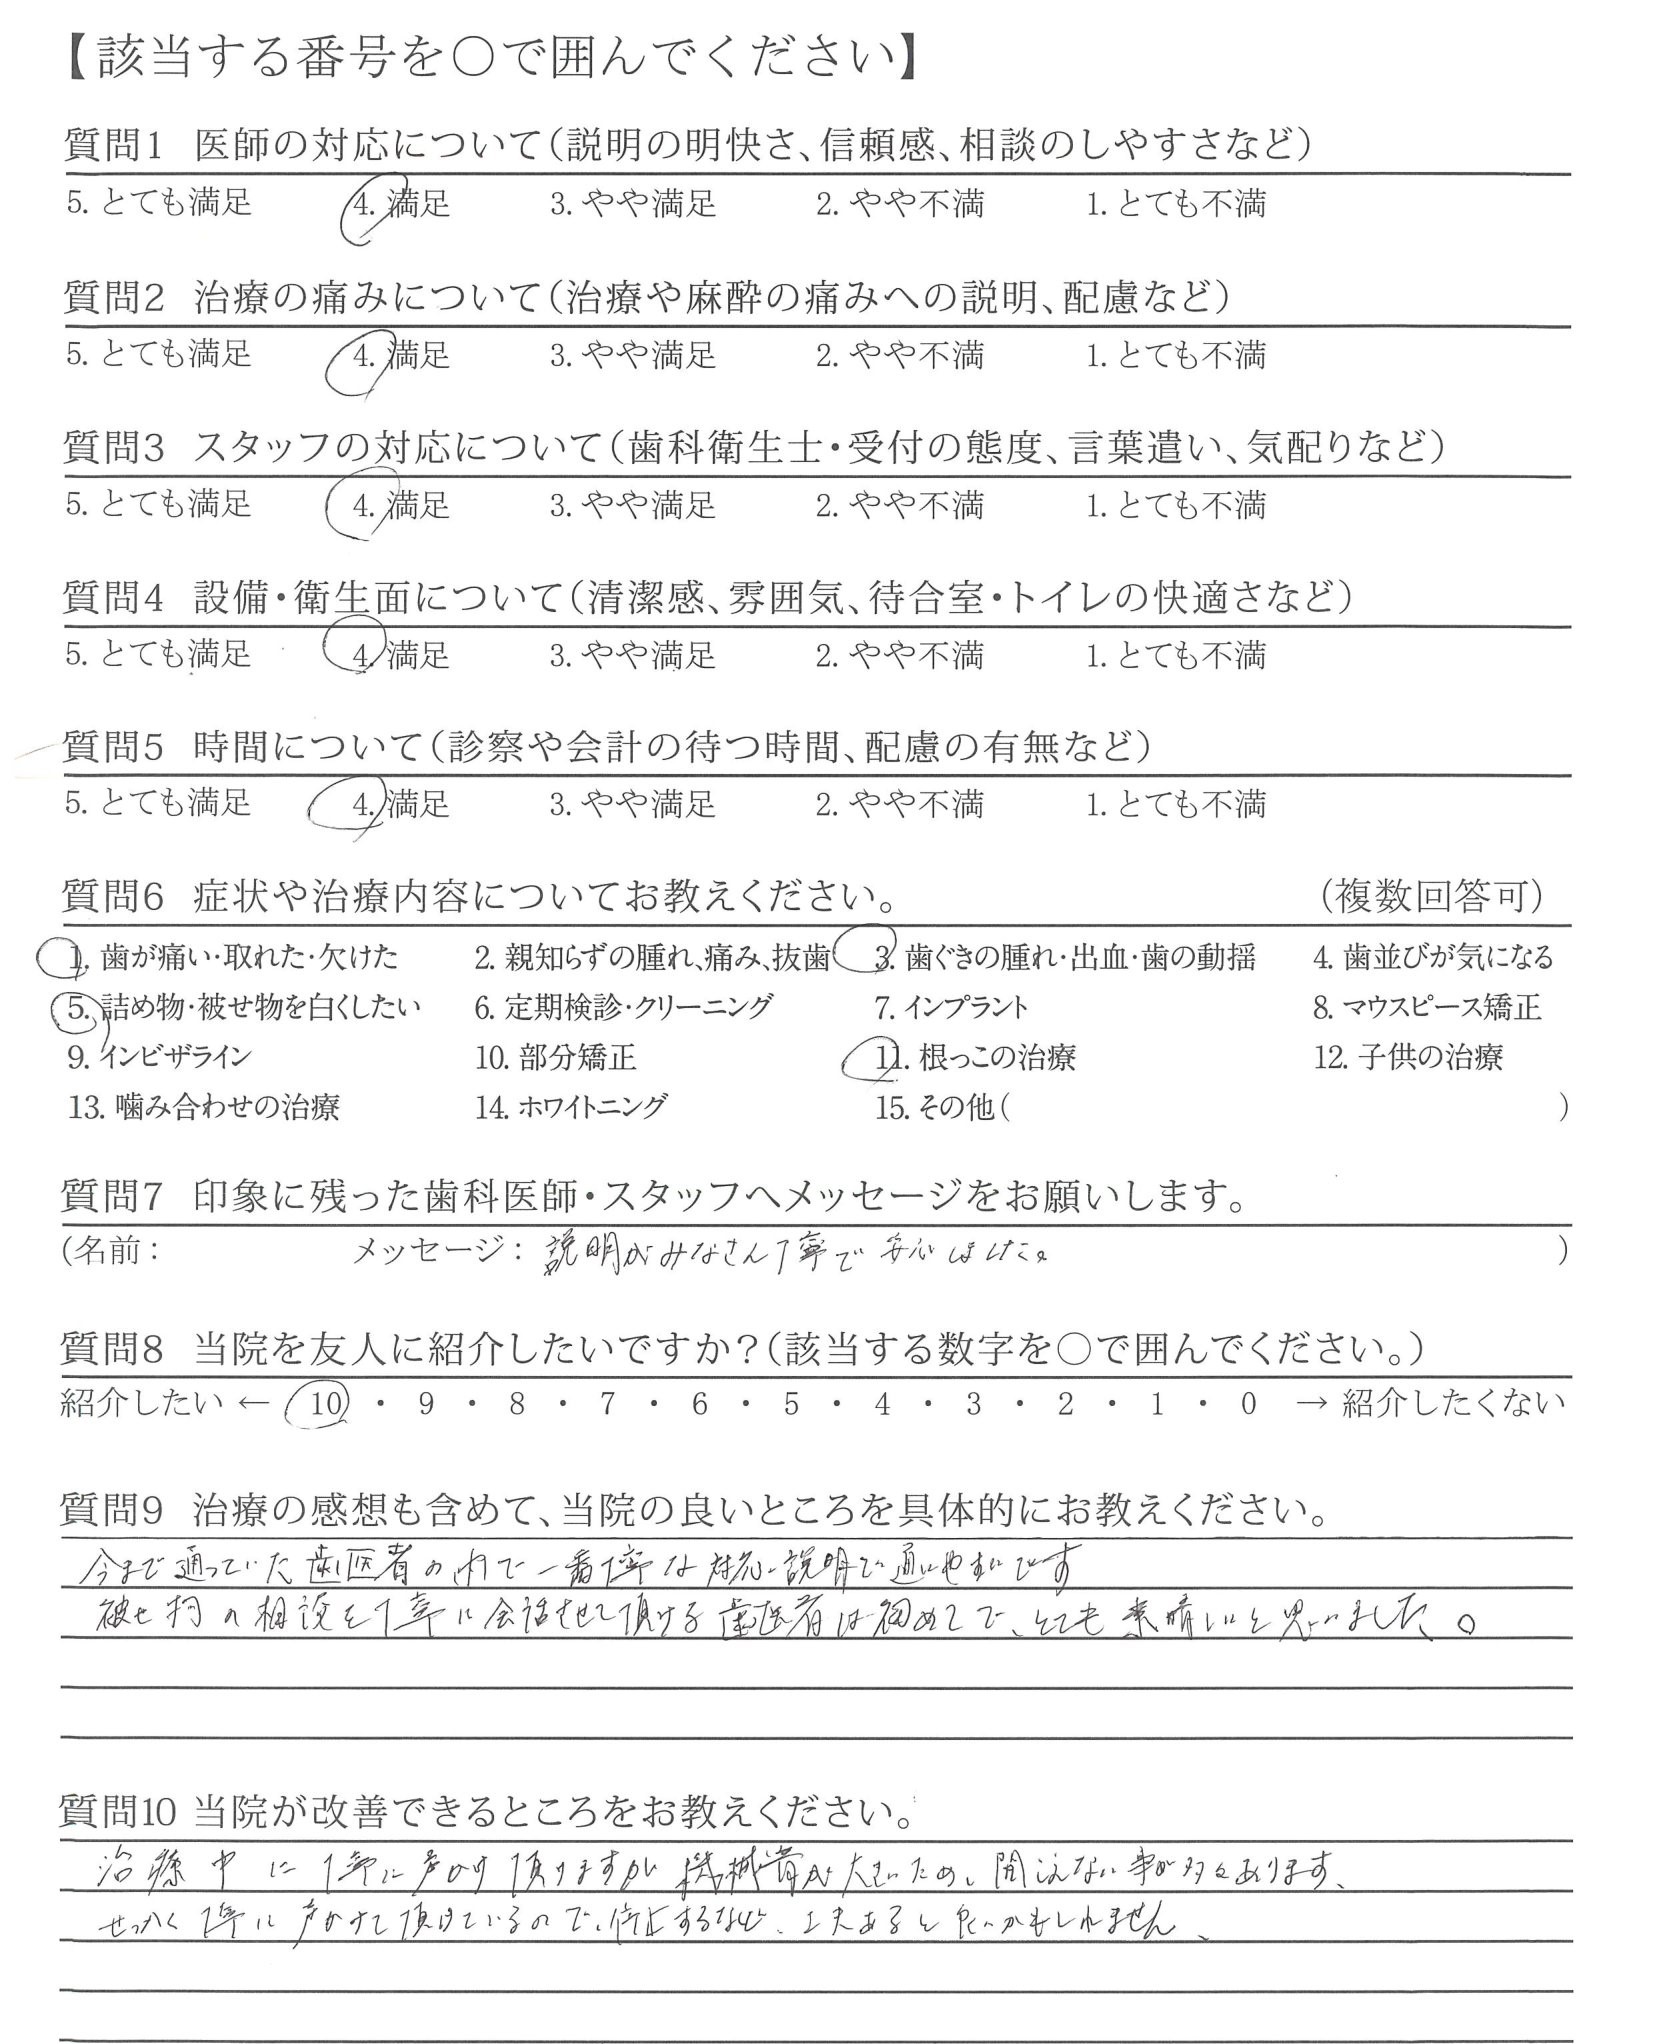 【該当する番号を〇で囲んでください】
質問1 医師の対応について(説明の明快さ、信頼感、相談のしやすさなど)
5. とても満足 4. 満足 3. やや満足 2. やや不満 1. とても不満
質問2 治療の痛みについて(治療や麻酔の痛みへの説明、配慮など)
5. とても満足 4. 満足 3. やや満足 2. やや不満 1. とても不満
質問3 スタッフの対応について(歯科衛生士・受付の態度、言葉遣い、気配りなど)
5. とても満足 4. 満足 3. やや満足 2. やや不満 1. とても不満
質問4 設備・衛生面について(清潔感、雰囲気、待合室・トイレの快適さなど)
5. とても満足 4. 満足 3. やや満足 2. やや不満 1. とても不満
質問5 時間について(診察や会計の待つ時間、配慮の有無など)
5. とても満足 4. 満足 3. やや満足 2. やや不満 1. とても不満
質問6 症状や治療内容についてお教えください。 (複数回答可)
1. 歯が痛い・取れた・欠けた 2. 親知らずの腫れ、痛み、抜歯 3. 歯ぐきの腫れ・出血・歯の動揺 4. 歯並びが気になる
5. 詰め物・被せ物を白くしたい 6. 定期検診・クリーニング 7. インプラント 8. マウスピース矯正
9. インビザライン 10. 部分矯正 11. 根っこの治療 12. 子供の治療
13. 噛み合わせの治療 14. ホワイトニング 15. その他( )
質問7 印象に残った歯科医師・スタッフへメッセージをお願いします。
(名前: メッセージ: 説明がみなさん丁寧で安心しました。 )
質問8 当院を友人に紹介したいですか?(該当する数字を〇で囲んでください。)
紹介したい ← 10 ・ 9 ・ 8 ・ 7 ・ 6 ・ 5 ・ 4 ・ 3 ・ 2 ・ 1 ・ 0 → 紹介したくない
質問9 治療の感想も含めて、当院の良いところを具体的にお教えください。
今まで通っていた歯医者の中で一番丁寧な対応、説明で通いやすいです
被せ物の相談を丁寧に会話させて頂ける歯医者は初めてで、とても素晴しいと思いました。
質問10 当院が改善できるところをお教えください。
治療中に丁寧に声かけ頂けますが機械音が大きいため、聞こえない事が多々あります、
せっかく丁寧に声かけて頂けているので、停止するなど、工夫あると良いかもしれません、